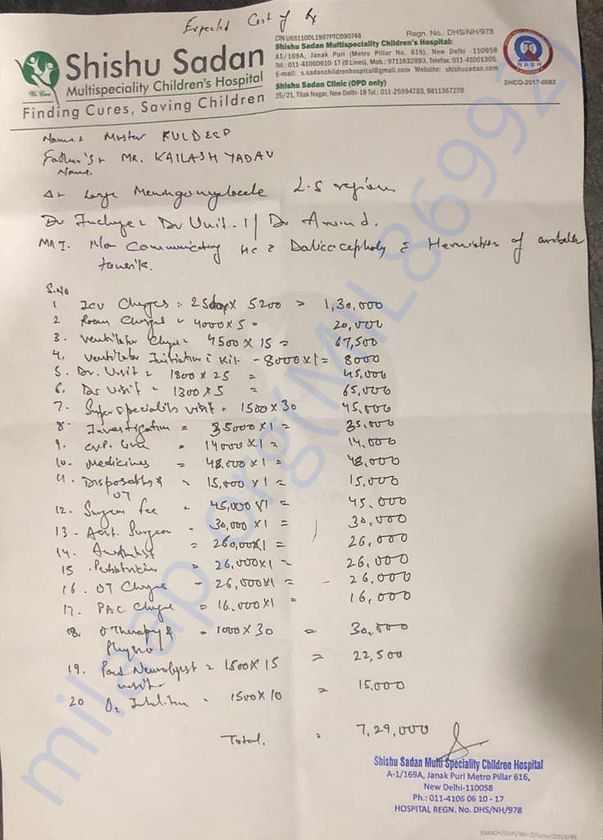 Expected Cost of Rx
CIN U85110DL1997PTC090746
Regn. No.: DHS/NH/978
Shishu Sadan
Multispeciality Children's Hospital
Finding Cures, Saving Children
Shishu Sadan Multispeciality Children's Hospital:
A1/169A, Janak Puri (Metro Pillar No. 616), New Delhi -110058
Tel: 011-41060610-17 (8 Lines), Mob.: 9711632893, Telefax. 011-41001305.
E-mail: s.sadanchildrenhospital@gmail.com Website: shishusadan.com
Shishu Sadan Clinic (OPD only)
25/21, Tilak Nagar, New Delhi-18 Tel.: 011-25994783, 9811367270
NABH
SHCO-2017-0592
Name: Master KULDEEP
Father's MR. KAILASH YADAV
Name.
Δ: Large Meningomyelocele L.S region
Dr Incharge: Dr Unit-1/Dr Arvind.
MRI. Non Communicating Hc c Dolicocephaly c Herniation of
tonsils.
S.No
1 ICU Charges: 25days x 5200 = 1,30,000
2 Room Charges = 4000 x 5 = 20,000
3. Ventilator Charges = 4500 x 15 = 67,500
4. Ventilator Initiation c Kit - 8000x1 = 8000
5. Dr. Visit = 1800 x 25 = 45,000
6. Dr Visit = 1300 x 5 = 65,000
7. Super specialist visit = 1500 x 30 45,000
8. Investigation = 35000 x 1 = 35,000
9. line = 14000 x 1 = 14,000
10. Medicines = 48,000 x 1 = 48,000
11. Disposables = 15,000 x 1 = 15,000
OT
12. Surgeon fee = 45,000 x 1 = 45,000
13 - Asst. Surgeon - 30,000 x 1 = 30,000
14. Anesthetist = 260,00x1 = 26,000
15. Pediatrician = 26,000x1 = 26,000
16. OT Charges - 26,000x1 = - 26,000
17. PAC Charges = 16,000x1 = 16,000
18. O Therapy & = 1000 x 30 = 30,500
Physio
19. Paed Neurologist = 1500 x 15 = 22,500
visit
20 O2 - 1500 x 10 = 15,000
Total. = 7,29,000
Shishu Sadan Multi Speciality Children Hospital
A-1/169A, Janak Puri Metro Pillar 616,
New Delhi-110058
Ph.: 011-4106 06 10 - 17
HOSPITAL REGN. No. DHS/NH/978
milaap.org(MIL86992)